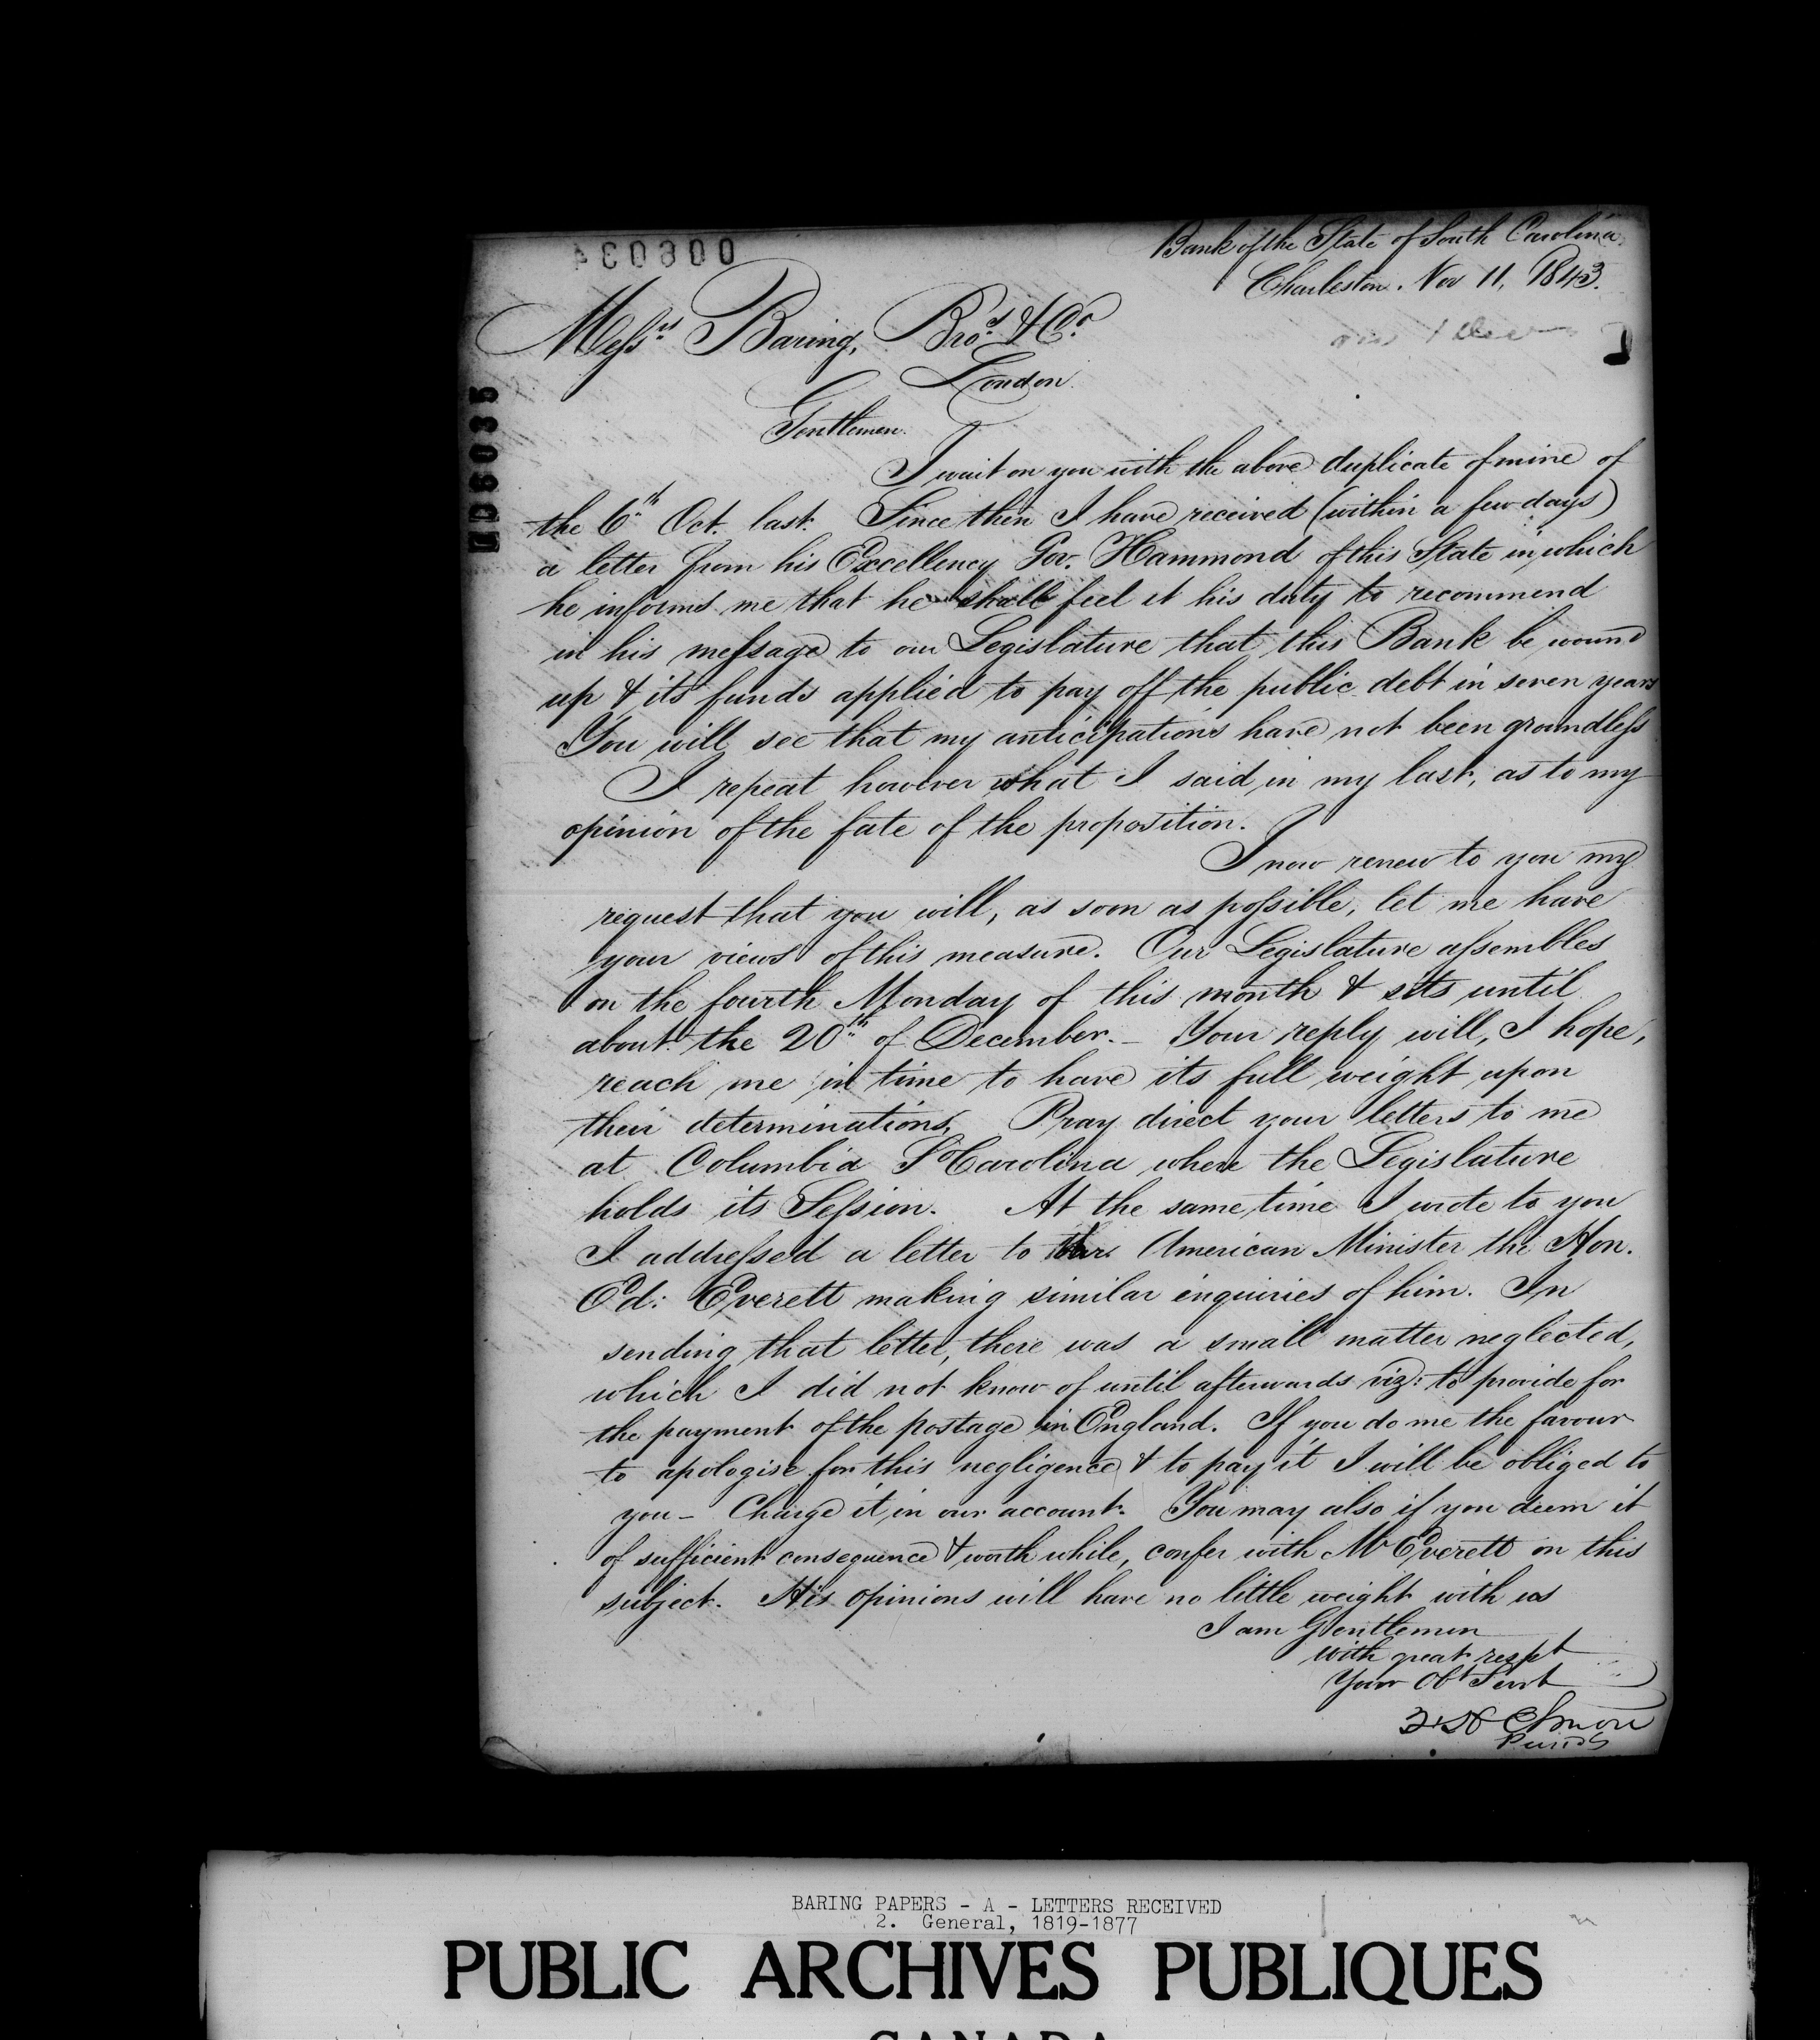 Bank of the State of South Carolina
Charleston. Nov 11, 1843.
Messrs Baring, Bros & Co
London
Gentlemen.
I wait on you with the above duplicate of mine of
the 6th Oct. last. Since then I have received (within a few days)
a letter from his Excellency Gov. Hammond of this State in which
he informs me that he shall feel it his duty to recommend
in his message to our Legislature that this Bank be wound
up & its funds applied to pay off the public debt in seven years
You will see that my anticipations have not been groundless
I repeat however what I said in my last, as to my
opinion of the fate of the proposition.
I now renew to you my
request that you will, as soon as possible, let me have
your views of this measure. Our Legislature assembles
on the fourth Monday of this month & sits until
about the 20th of December. – Your reply will, I hope,
reach me in time to have its full weight upon
their determinations. Pray direct your letters to me
at Columbia So Carolina where the Legislature
holds its Session. At the same time I wrote to you
I addressed a letter to American Minister the Hon.
Ed: Everett making similar inquiries of him. In
sending that letter, there was a small matter neglected,
which I did not know of until afterwards viz: to provide for
the payment of the postage in England. If you do me the favour
to apologise for this negligence & to pay it I will be obliged to
you – Charge it in our account. You may also if you deem it
of sufficient consequence & worth while, confer with Mr Everett on this
subject. His opinions will have no little weight with us
I am Gentlemen
with great respt
Your Obt Servt
F H Elmore
BARING PAPERS - A - LETTERS RECEIVED
2. General, 1819-1877
PUBLIC ARCHIVES PUBLIQUES
CANADA